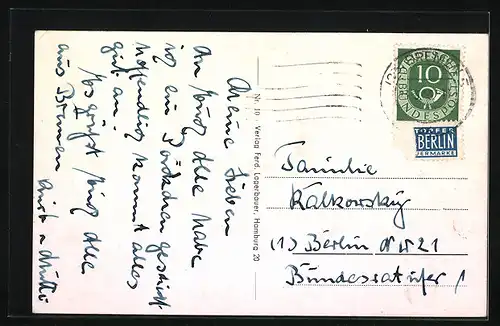 Meine Lieben
An Euch Alle habe
ich ein Päckchen geschickt
hoffentlich kommt alles
gut an.
Es grüßt Euch Alle
aus Bremen
Nr. 10 - Verlag Ferd. Lagerbauer, Hamburg 20
10
BUNDESPOST
NOTOPFER
BERLIN
STEUERMARKE
Familie
Kalkowsky
(1) Berlin NW 21
Bundesratufer 1